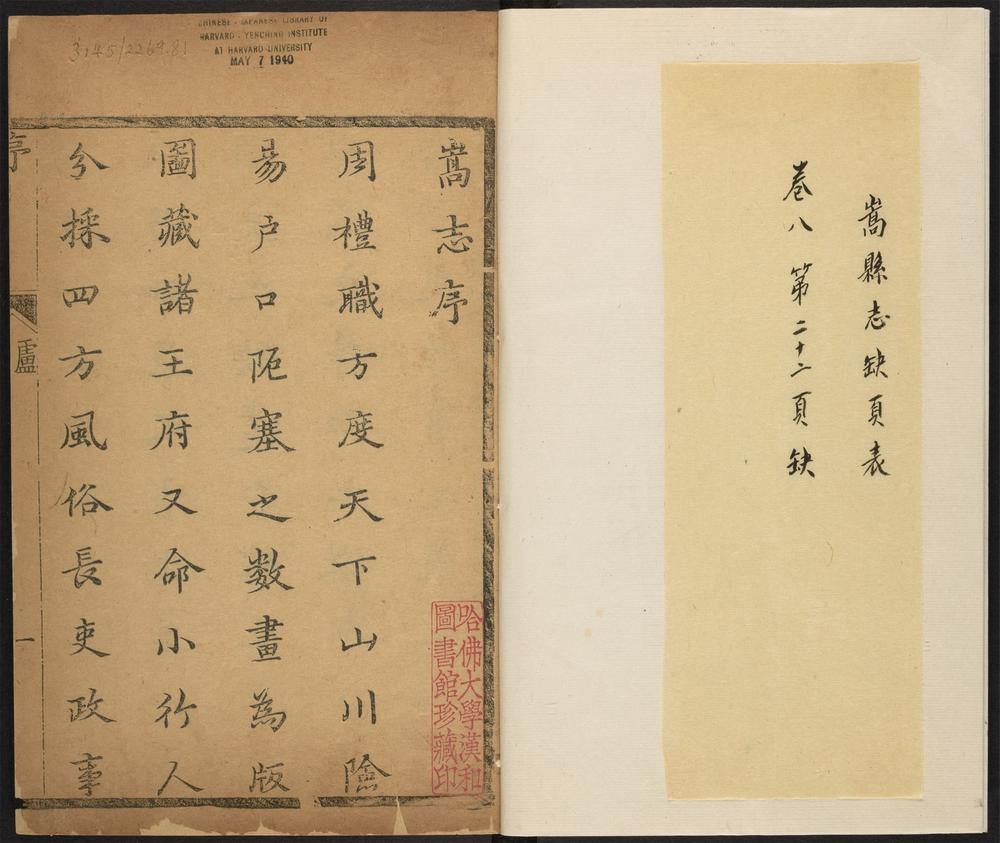 嵩縣志缺頁表
卷八第二十二頁缺
CHINESE - JAPANESE LIBRARY OF
HARVARD - YENCHING INSTITUTE
AT HARVARD UNIVERSITY
MAY 7 1940
3145/2269.81
嵩志序
周禮職方度天下山川險
易戶口阨塞之数畫為版
圖藏諸王府又命小行人
分採四方風俗長吏政事
哈佛大學漢和
圖書館珍藏印
序
盧
一